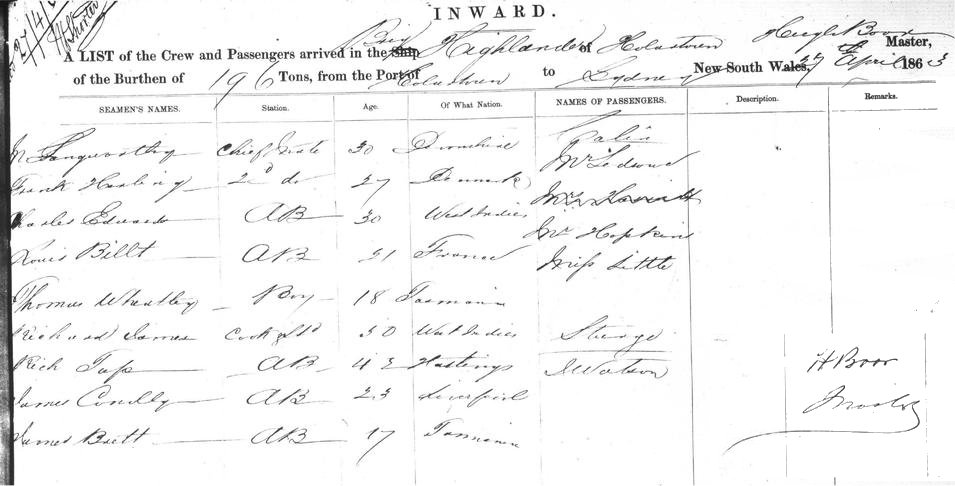 INWARD.
A LIST of the Crew and Passengers arrived in the Ship Brig Highlander of Hobartown Hugh Boor Master,
of the Burthen of 196 Tons, from the Port of Hobartown to Sydney New South Wales, 27 April 1863
SEAMEN'S NAMES. Station. Age. Of What Nation. NAMES OF PASSENGERS. Description. Remarks.
Cabin
M Langworthy Chief Mate 30 Devonshire Mr Ledson
Frank 2d do 27 Denmark Mrs
Charles Edwards AB 30 West Indies Mr Hopkins
Louis Billt AB 21 France Miss Little
Thomas Wheatley Boy 18 Tasmania
Richard James Cook & Std 30 West Indies Steerage
Rich Tap AB 42 Hastings J Watson H Boor
James Conolly AB 23 Liverpool Master
James Britt AB 17 Tasmania